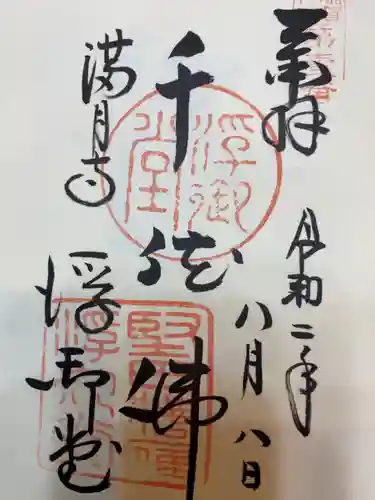 奉拝
令和二年
八月八日
千体佛
満月寺
浮御堂
浮御堂